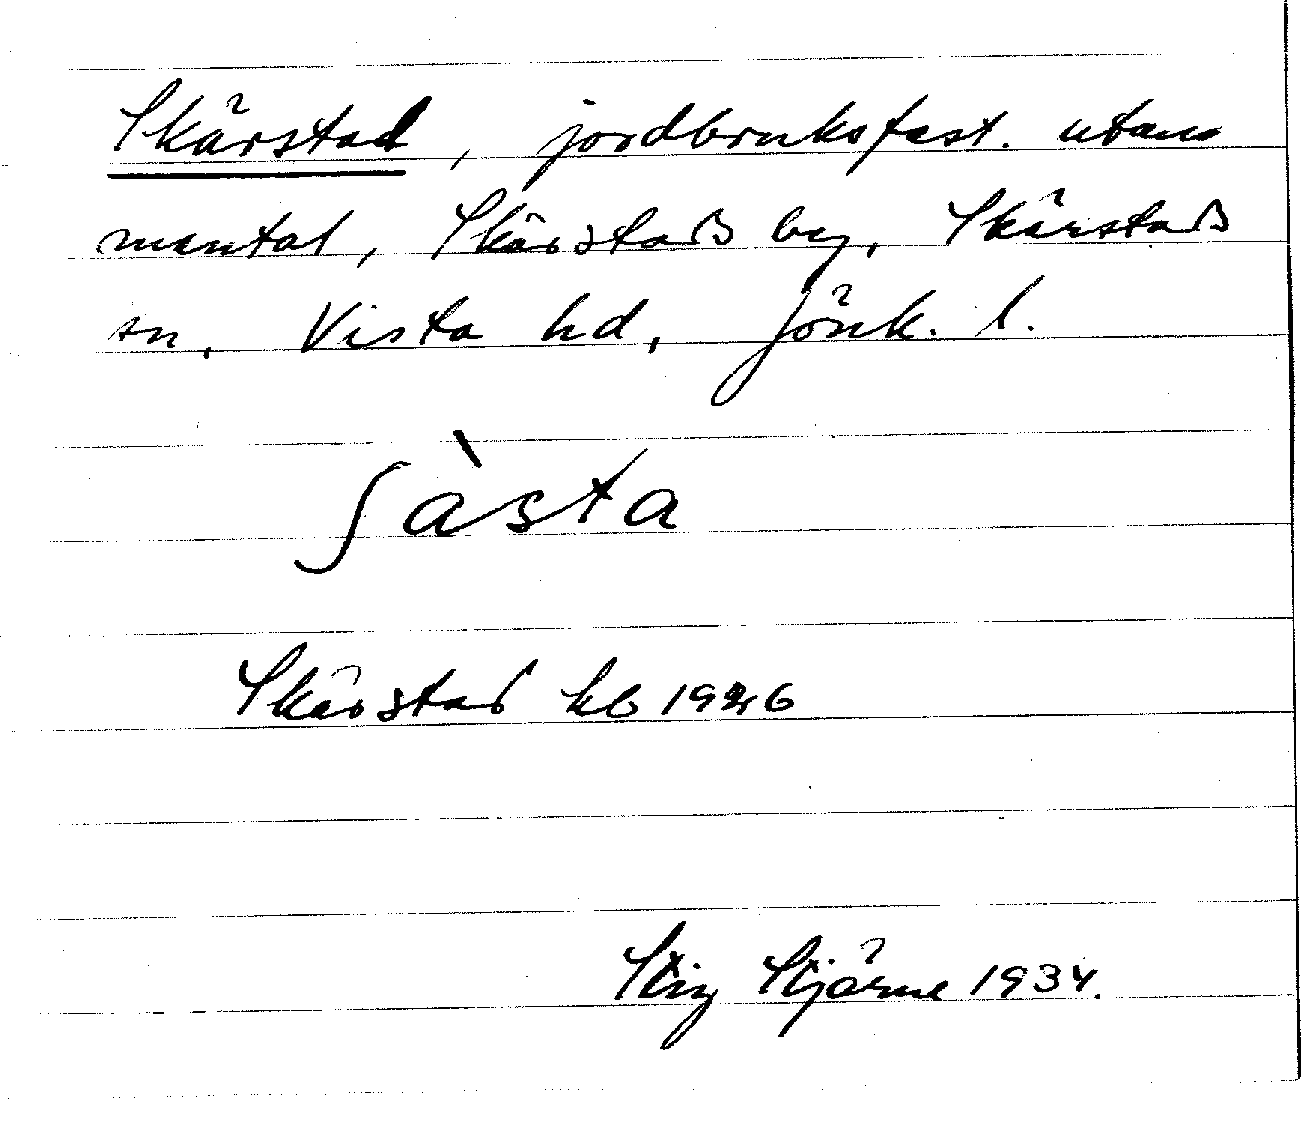 Skärstad, jordbruksfast. utan
mantal, Skärstads by, Skärstads
sn, Vista hd, Jönk. l.
ʃàsta
Skärstad kb 1926
Stig Stjärne 1934.